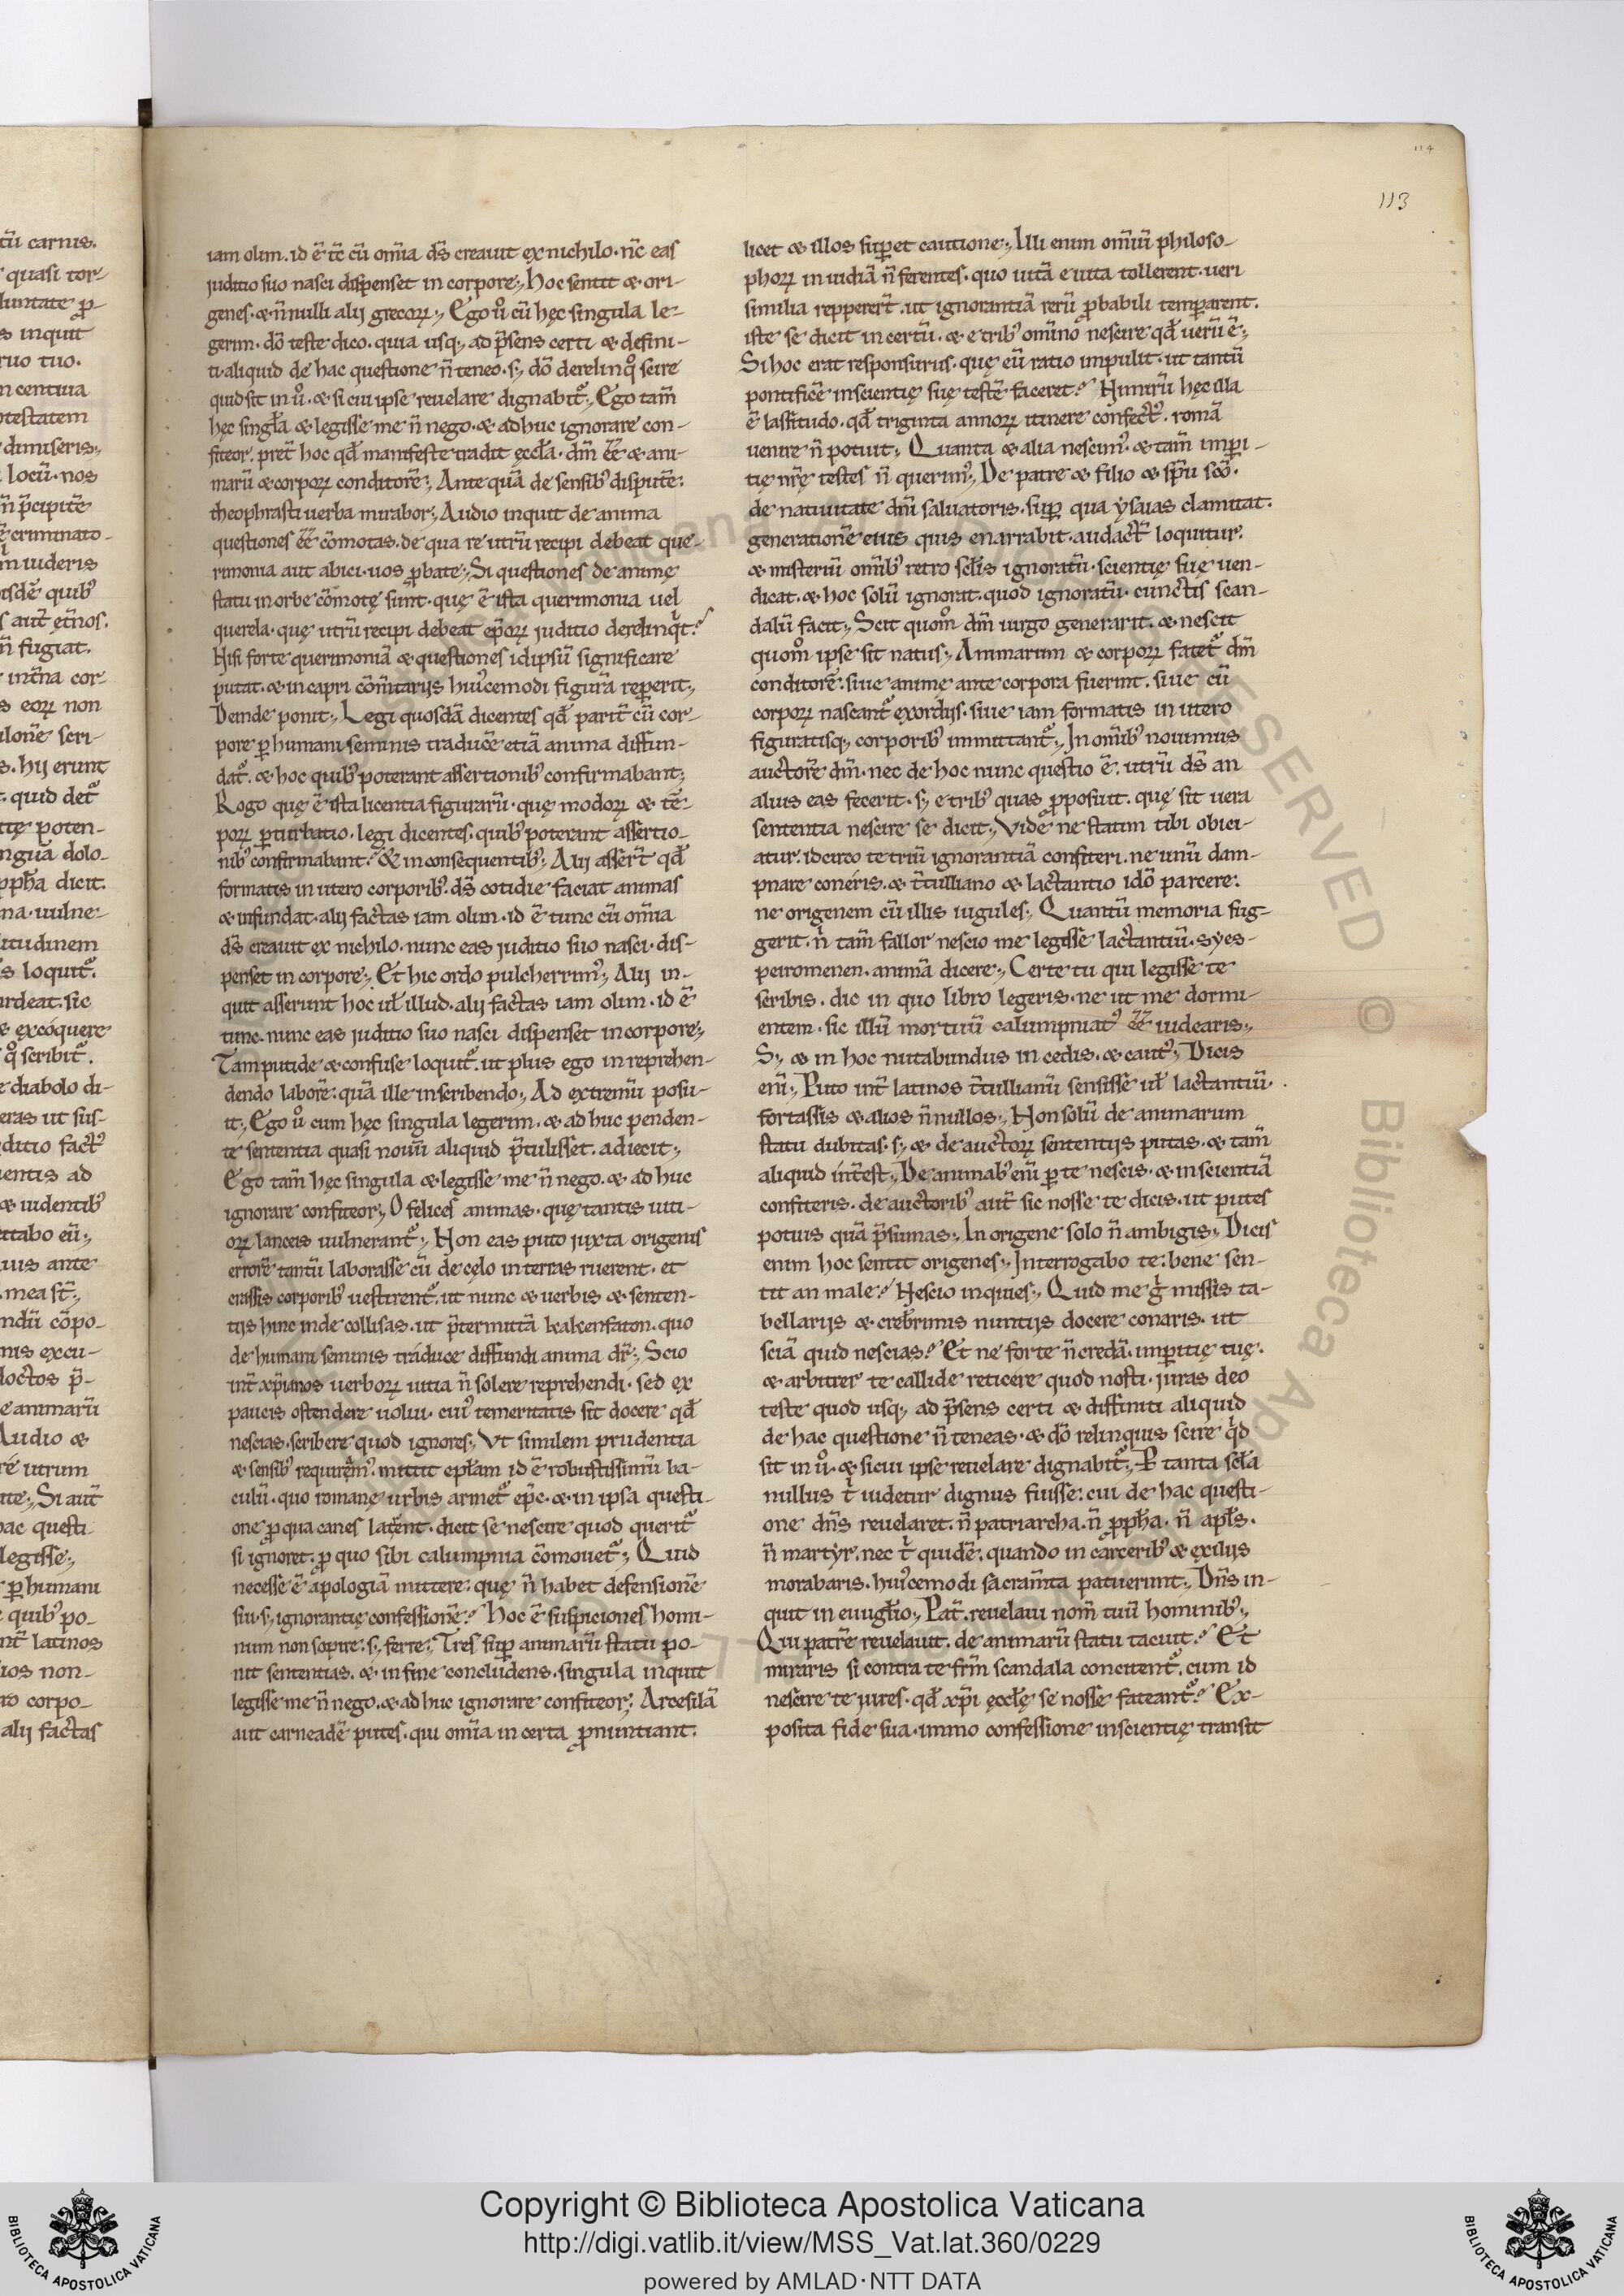 114
113
iam olim. id ē tc̄ cū om̄ia ds̄ creauit ex nichilo. nc̄ eas
juditio suo nasci dispenset in corpore; hoc sentit & ori-
genes. & n̄nulli alij grecorꝝ; Ego u̾o cū hęc singula le-
gerim. dō teste dico. quia usq; ad p̄sens certi & defini-
ti aliquid de hac questione n̄ teneo. s; dō derelinq̊ scire
quid sit in u̾o. & si cui ipse reuelare dignabit᷑; Ego tam̄
hęc singl̄a & legisse me n̄ nego. & adhuc ignorare con-
fiteor. pret̄ hoc qd̄ manifeste tradit ęccl̄a. dm̄ ēē & ani-
marū & corporꝝ conditorē; Ante quā de sensib᾿ disputē:
theophrasti uerba mirabor; Audio inquit de anima
questiones ēē cōmotas. de qua re utrū recipi debeat que-
rimonia aut abici. uos ꝓbate; Si questiones de animę
statu in orbe cōmotę sunt. quę ē ista querimonia uel
querela. quę utrū recipi debeat ep̄orꝝ juditio derelinqͥt?
Nisi forte querimoniā & questiones idipsū significare
putat. & in capri cōm̄tarijs hui᾿cemodi figurā reꝑerit;
Deinde ponit; Legi quosdā dicentes qd̄ parit̄ cū cor-
pore ꝑ humani seminis traducē etiā anima diffun-
dat᷑. & hoc quib᾿ poterant assertionib᾿ confirmabant;
Rogo quę ē ista licentia figurarū. quę modorꝝ & tē-
porꝝ ꝑturbatio. legi dicentes. quib᾿ poterant assertio-
nib᾿ confirmabant? & in consequentib᾿; Alij assert̄ qd̄
formatis in utero corporib᾿. ds̄ cotidie faciat animas
& infundat. alij factas iam olim. id ē tunc cū om̄ia
ds̄ creauit ex nichilo. nunc eas juditio suo nasci. dis-
penset in corpore; Et hic ordo pulcherrim᾿; Alij in-
quit asserunt hoc ul̄ illud. alij factas iam olim. id ē
tunc. nunc eas juditio suo nasci dispenset in corpore;
Tam putide & confuse loquit᷑. ut plus ego in reprehen-
dendo laborē: quā ille in scribendo; Ad extremū posu-
it; Ego u̾o cum hęc singula legerim. & ad huc penden-
te sententia quasi noui᾿ aliquid p̄tulisset. adiecit;
Ego tam̄ hęc singula & legisse me n̄ nego. & ad huc
ignorare confiteor; O felices animas. quę tantis uiti-
orꝝ lanceis uulnerant᷑; Non eas puto juxta origenis
errorē tantū laborasse cū de cęlo in terras ruerent. et
crassis corporib᾿ uestirent᷑. ut nunc & uerbis & senten-
tijs hinc inde collisas. ut p̄termittā kakenfaton. quo
de humani seminis traduce diffundi anima dr̄; Scio
int̄ xp̄ianos uerborꝝ uitia n̄ solere reprehendi. sed ex
paucis ostendere uolui. cui᾿ temeritatis sit docere qd̄
nescias. scribere quod ignores; Vt similem prudentia
& sensib᾿ requirem᾿. mittit epl̄am id ē robustissimū ba-
culū. quo romanę urbis armet᷑ ep̄c. & in ipsa questi-
one ꝓ qua canes latrent. dicit se nescire quod querit᷑
si ignoret. ꝓ quo sibi calumpnia cōmouet᷑; Quid
necesse ē apologiā mittere: quę n̄ habet defensionē
sui. s; ignorantię confessionē? Hoc ē suspiciones homi-
num non sopire: s; ferre; Tres suꝑ animarū statu po-
nit sententias. & in fine concludens. singula inquit
legisse me n̄ nego. & ad huc ignorare confiteor; Arcesilā
aut carneadē putes. qui om̄ia incerta ꝓnuntiant.
licet & illos suꝑet cautione; Illi enim om̄iū philoso-
phorꝝ inuidiā n̄ ferentes. quo uitā e uita tollerent. ueri
similia reppererūt. ut ignorantiā rerū ꝓbabili temꝑarent.
iste se dicit in certū. & e trib᾿ om̄ino nescire qd̄ uerū ē;
Si hoc erat responsurus. quę eū ratio impulit. ut tantū
pontificē inscientię suę testē faceret? Nimirū hęc illa
ē lassitudo. qd̄ triginta annorꝝ itinere confect᾿. romā
uenire n̄ potuit; Quanta & alia nescim᾿. & tam̄ imꝑi-
tię nr̄ę testes n̄ querim᾿; De patre & filio & spū scō.
de natiuitate dn̄i saluatoris. suꝑ qua ysaias clamitat.
generationē eius quis enarrabit. audact̄ loquitur.
& misteriū om̄ib᾿ retro scl̄is ignoratū. scientię suę uen-
dicat. & hoc solū ignorat. quod ignoratū. cunctis scan-
dalū facit; Scit quom̊ dm̄ uirgo generarit. & nescit
quom̊ ipse sit natus; Animarum & corporꝝ fatet᷑ dm̄
conditorē. siue animę ante corpora fuerint. siue cū
corporꝝ nascant᷑ exordijs. siue iam formatis in utero
figuratisq; corporib᾿ immittant᷑; In om̄ib᾿ nouimus
auctorē dm̄. nec de hoc nunc questio ē. utrū ds̄ an
alius eas fecerit. s; e trib᾿ quas ꝓposuit. quę sit uera
sententia nescire se dicit; Vide ne statim tibi obici-
atur. idcirco te triū ignorantiā confiteri. ne unū dam-
pnare coneris. & t̄tulliano & lactantio idō parcere:
ne origenem cū illis iugules; Quantū memoria sug-
gerit. nͥ tam̄ fallor nescio me legisse lactantiū. syes-
peiromenen. animā dicere; Certe tu qui legisse te
scribis. dic in quo libro legeris. ne ut me dormi-
entem. sic illū mortuū calumpniat᾿ ēē uidearis;
S; & in hoc nutabundus in cedis. & caut᾿; Dicis
enī; Puto int̄ latinos t̄tullianū sensisse ul̄ lactantiū.
fortassis & alios n̄nullos; Non solū de animarum
statu dubitas. s; & de auctorꝝ sententijs putas. & tam̄
aliquid int̄est; De animab᾿ enī aꝑte nescis. & inscientiā
confiteris. de auctorib᾿ aut̄ sic nosse te dicis. ut putes
potius quā p̄sumas; In origene solo n̄ ambigis; Dicis
enim hoc sentit origenes; Interrogabo te: bene sen-
tit an male? Nescio inquies; Quid me gͥ missis ta-
bellarijs & crebrimis nuntijs docere conaris. ut
sciā quid nescias? Et ne forte n̄ credā. imꝑitię tuę.
& arbitrer te callide reticere quod nosti. juras deo
teste quod usq; ad p̄sens certi & diffiniti aliquid
de hac questione n̄ teneas. & dō relinquis scire qͥd
sit in u̾o. & si cui ipse reuelare dignabit᷑; P tanta scl̄a
nullus tͥ uidetur dignus fuisse: cui de hac questi-
one dn̄s reuelaret. n̄ patriarcha. n̄ ꝓph̄a. n̄ apl̄s.
n̄ martyr. nec tͥ quidē: quando in carcerib᾿ & exilijs
morabaris. hui᾿cemodi sacram̄ta patuerunt; Dn̄s in-
quit in euugl̄io; Pat̄. reuelaui nom̄ tuū hominib᾿;
Qui patrē reuelauit. de animarū statu tacuit? Et
miraris si contra te frm̄ scandala concitent᷑. cum id
nescire te jures. qd̄ xp̄i ęccl̄ę se nosse fateant᷑? Ex-
posita fide sua. immo confessione inscientię transit
Copyright © Biblioteca Apostolica Vaticana
http://digi.vatlib.it/view/MSS_Vat.lat.360/0229
powered by AMLAD·NTT DATA